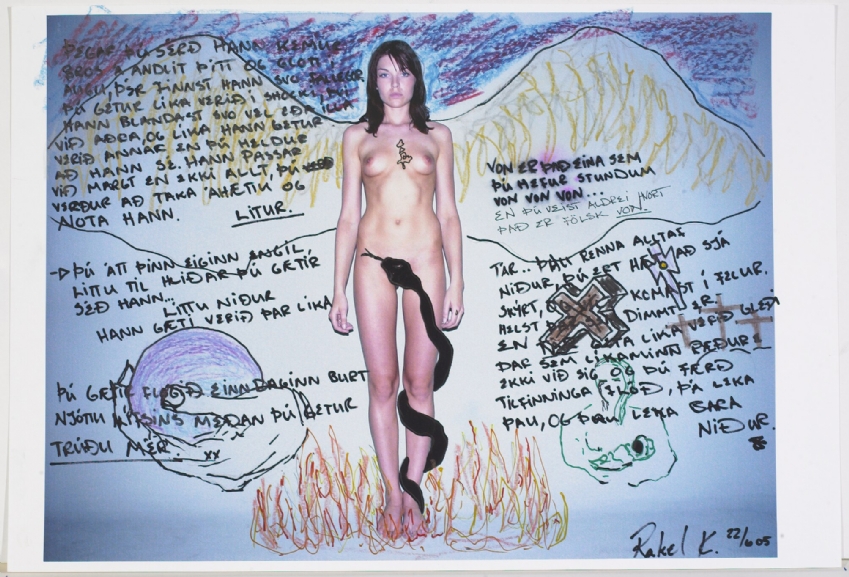 ÞEGAR ÞÚ SÉRÐ HANN KEMUR
BROS Á ANDLIT ÞITT OG GLOTT Í
AUGU, ÞÉR FINNST HANN SVO FALLEGUR.
ÞÚ GETUR LÍKA VERIÐ Í SHOCKI, ÞVÍ
HANN BLANDAST SVO VEL EÐA ILLA
VIÐ AÐRA, OG LÍKA HANN GETUR
VERIÐ ANNAR EN ÞÚ HELDUR
AÐ HANN SÉ. HANN PASSAR
VIÐ MARGT EN EKKI ALLT ÞÚ
VERÐUR AÐ TAKA ÁHÆTU OG
NOTA HANN. LITUR.
→ÞÚ ÁTT ÞINN EIGINN ENGIL,
LITTU TIL HLIÐAR ÞÚ GÆTIR
SÉÐ HANN...
LITTU NIÐUR
HANN GÆTI VERIÐ ÞAR LÍKA
ÞÚ GÆTIR FLOGIÐ EINN DAGINN BURT
NJÓTTU LÍFSINS MEÐAN ÞÚ GETUR
TRÚÐU MÉR.
XX XX
VON ER ÞAÐ EINA SEM
ÞÚ HEFUR STUNDUM
VON VON VON...
EN ÞÚ VEIST ALDREI HVORT
ÞAÐ ER FÖLSK VON.
TÁR.. ÞAU RENNA ALLTAF
NIÐUR, ÞÚ ERT AÐ SJÁ
SKÝRT, KEMAST Í FELUR.
HELST DIMMT ER
EN LÍKA VERIÐ GLEÐI
ÞAR SEM LÍKAMINN RÆÐUR
EKKI VIÐ SIG OG ÞÚ FÆRÐ
TILFINNINGA FLÓÐ, ÞÁ LEKA
ÞAU, OG ÞAU LEKA BARA
NIÐUR.
Rakel K. 22/6 05